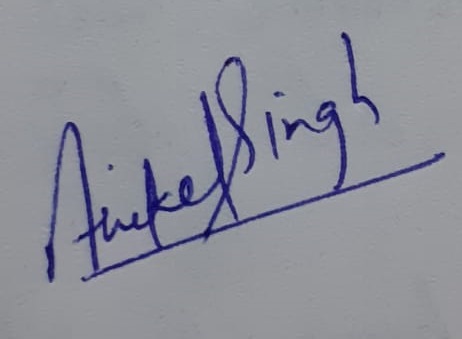 Aniket Singh